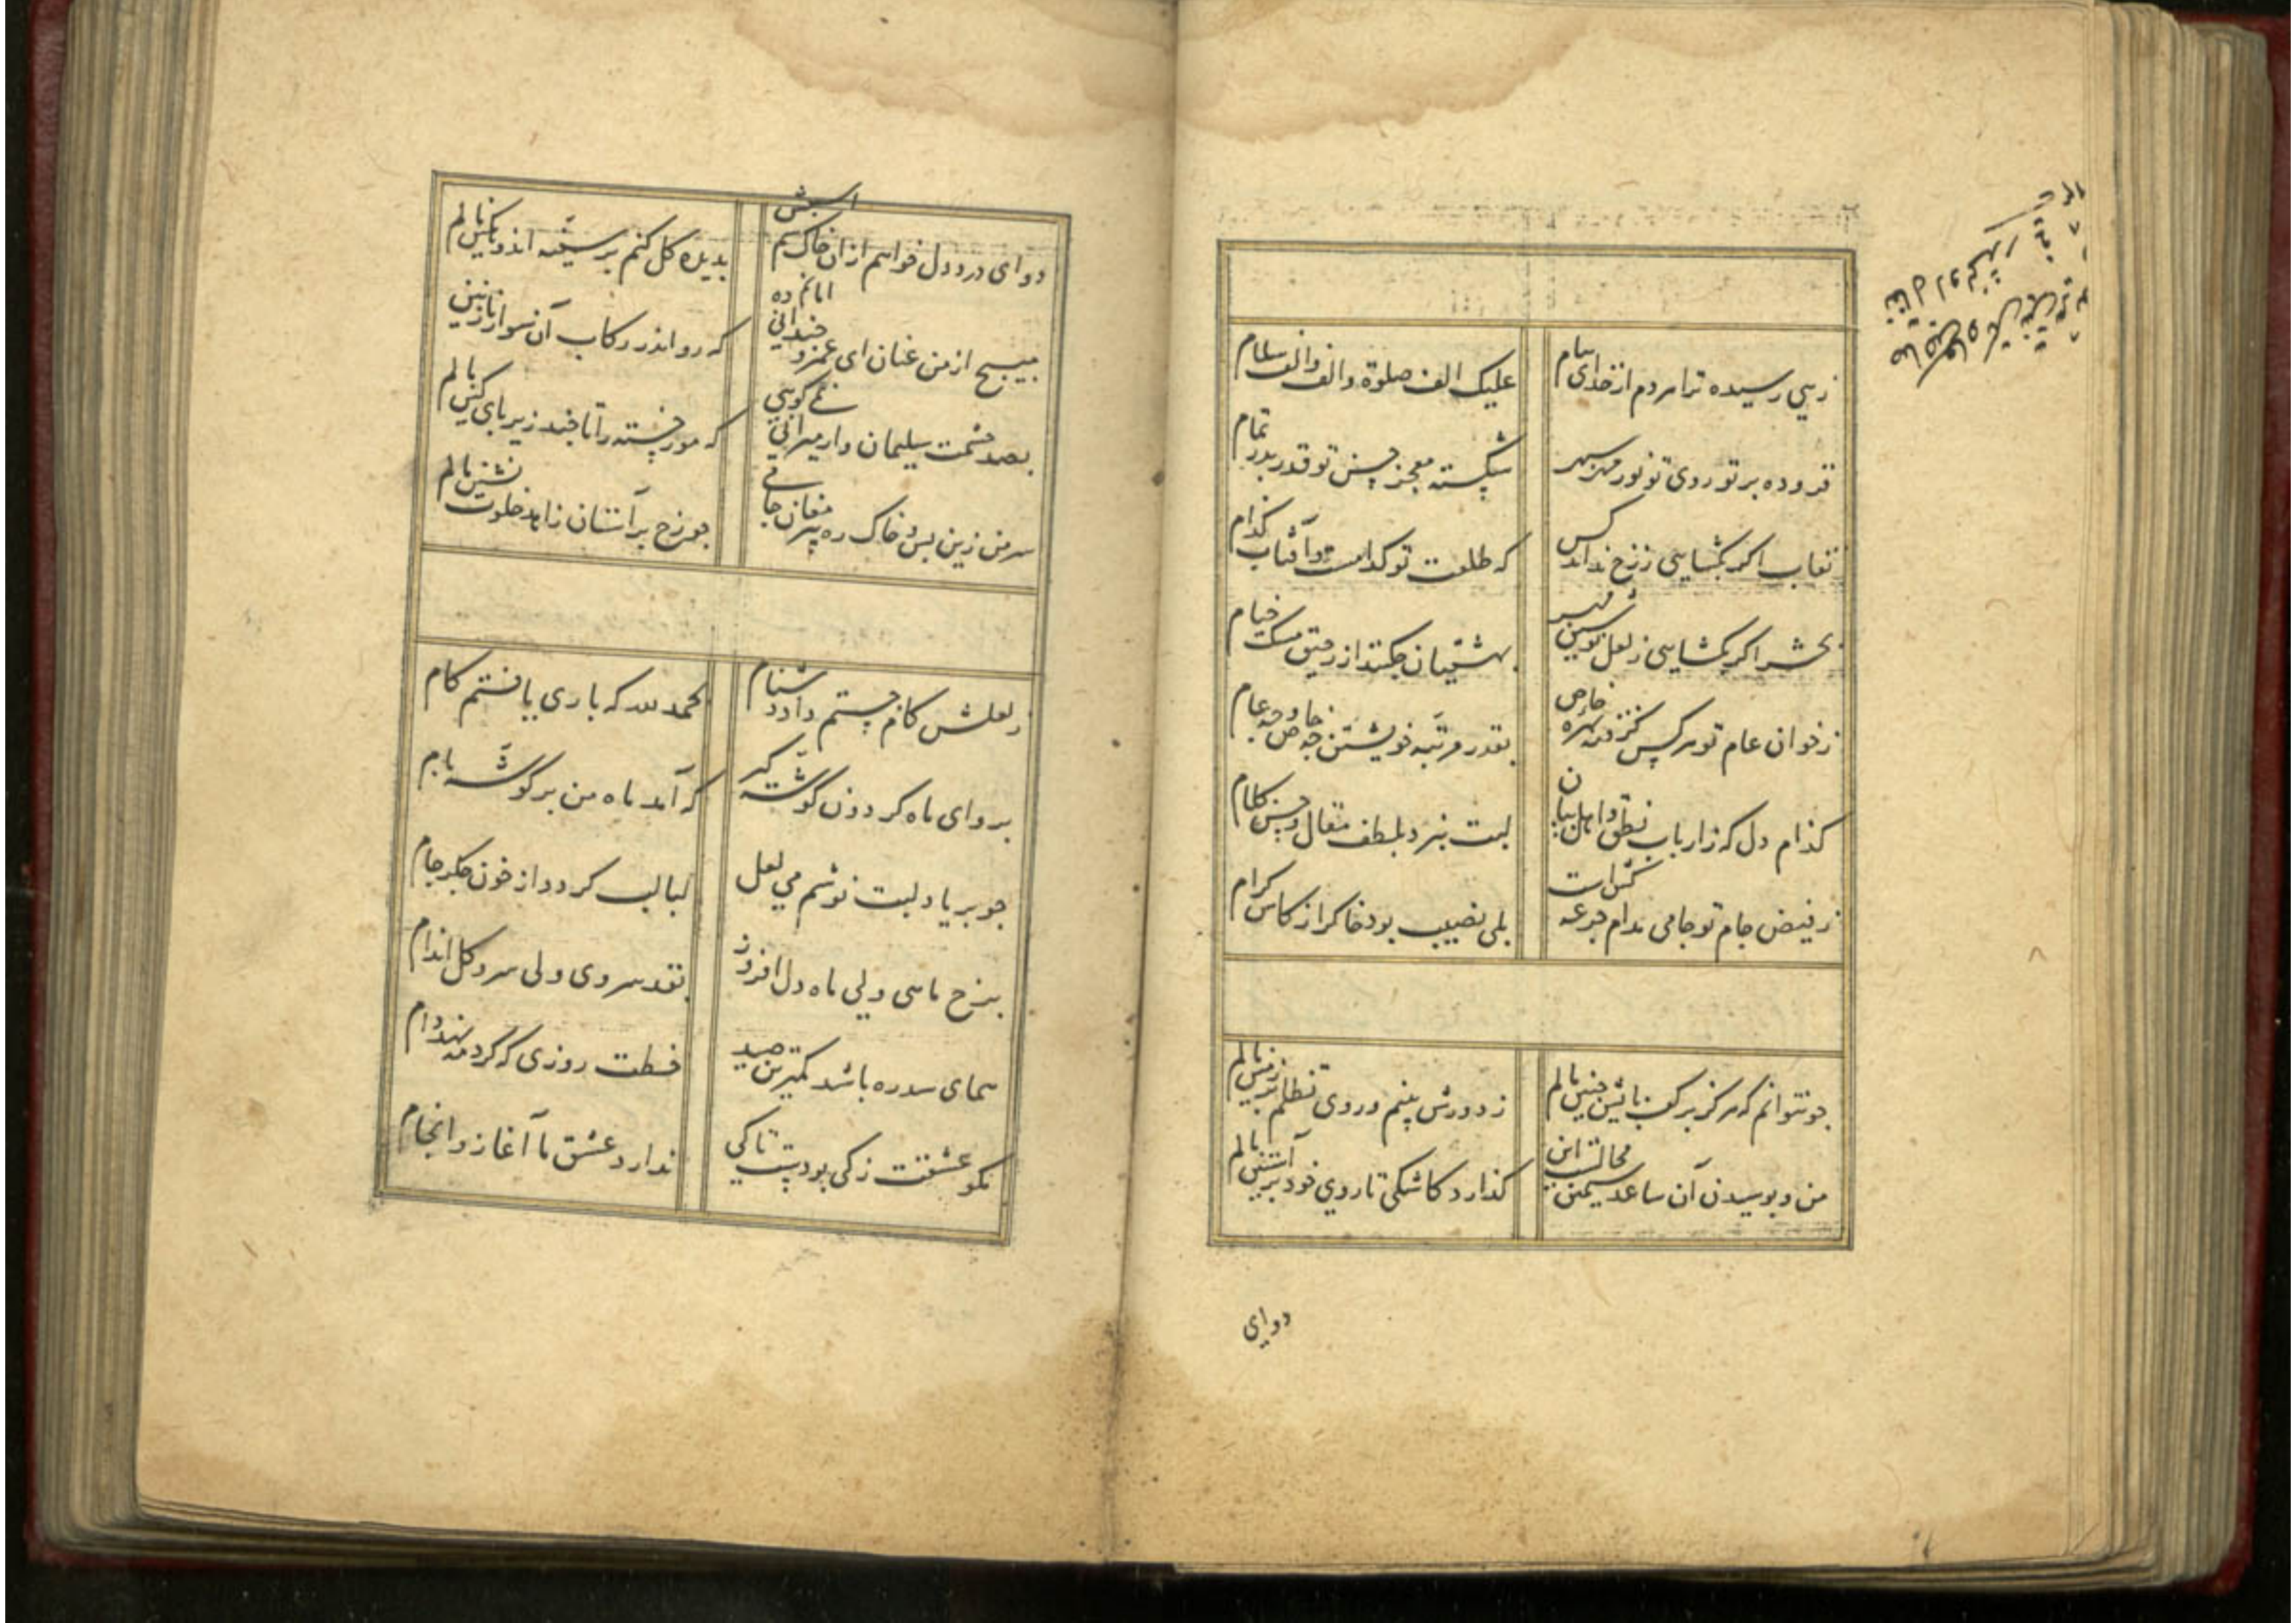 زهی رسیده ترا هر دم از خدای پیام
علیک الف صلوة و الف الف سلام
فزوده پرتو روی تو نور مهر سپهر
شکسته معجز حسن تو قدر بدر تمام
نقاب اگر بگشایی ز رخ نداند کس
که طلعت تو کدامست و آفتاب کدام
بحشر اگر بگشایی ز لعل نوشین مهر
بهشتیان چکنند از رحیق مسک ختام
ز خوان عام تو هر کس گرفته بهره خاص
بقدر مرتبه خویشتن چه خاص و چه عام
کدام دل که ز ارباب نطق و اهل بیان
لبت نبرد بلطف مقال و حسن کلام
ز فیض جام تو جامی مدام جرعه کش است
بلی نصیب بود خاک را ز کاس کرام
چو نتوانم که هرگز بر کف پایش جبین مالم
ز دورش بینم و روی تظلم بر زمین مالم
من و بوسیدن آن ساعد سیمین محالست این
گذارد کاشکی تا روی خود بر آستین مالم
دوای
دوای درد دل خواهم از آن خاک سم اسبش
بدیده گل کنم بر سینه اندوهگین مالم
مپیچ از من عنان ای عمر و چندانی امانم ده
که رو اندر رکاب آن سوار نازنین مالم
بصد حشمت سلیمان وار میرانی نمی گویی
که مور خسته را تا چند زیر پای کین مالم
سر من زین پس و خاک ره پیر مغان جامی
چو رخ بر آستان زاهد خلوت نشین مالم
ز لعلش کام جستم داد دشنام
بحمد لله که باری یافتم کام
برو ای ماه گردون گوشه گیر
که آمد ماه من بر گوشه بام
چو بر یاد لبت نوشم می لعل
لبالب گردد از خون جگر جام
برخ ماهی ولی ماه دل افروز
بقد سروی ولی سرو گل اندام
همای سدره باشد کمترین صید
خطت روزی که گرد مه نهد دام
مگو عشقت ز کی بودست تا کی
ندارد عشق ما آغاز و انجام